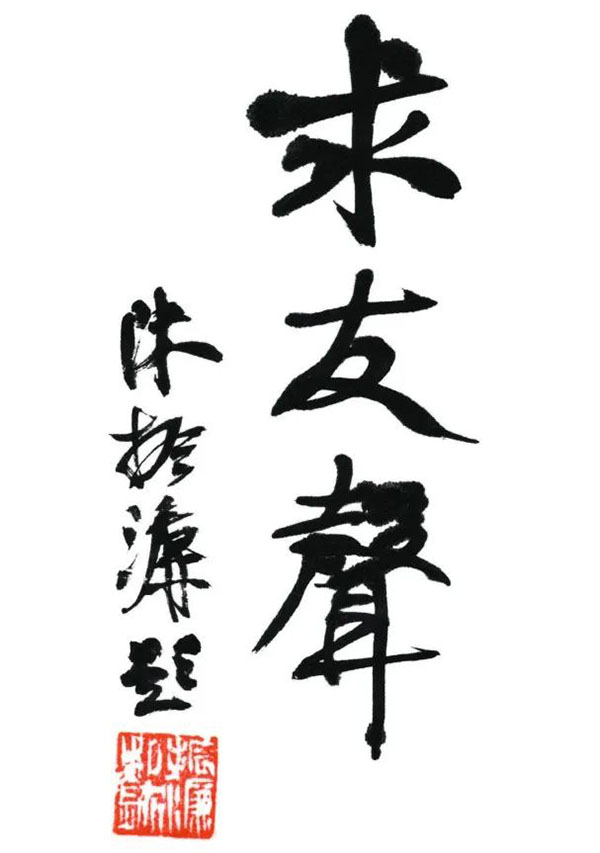 求友聲
陈振濂題